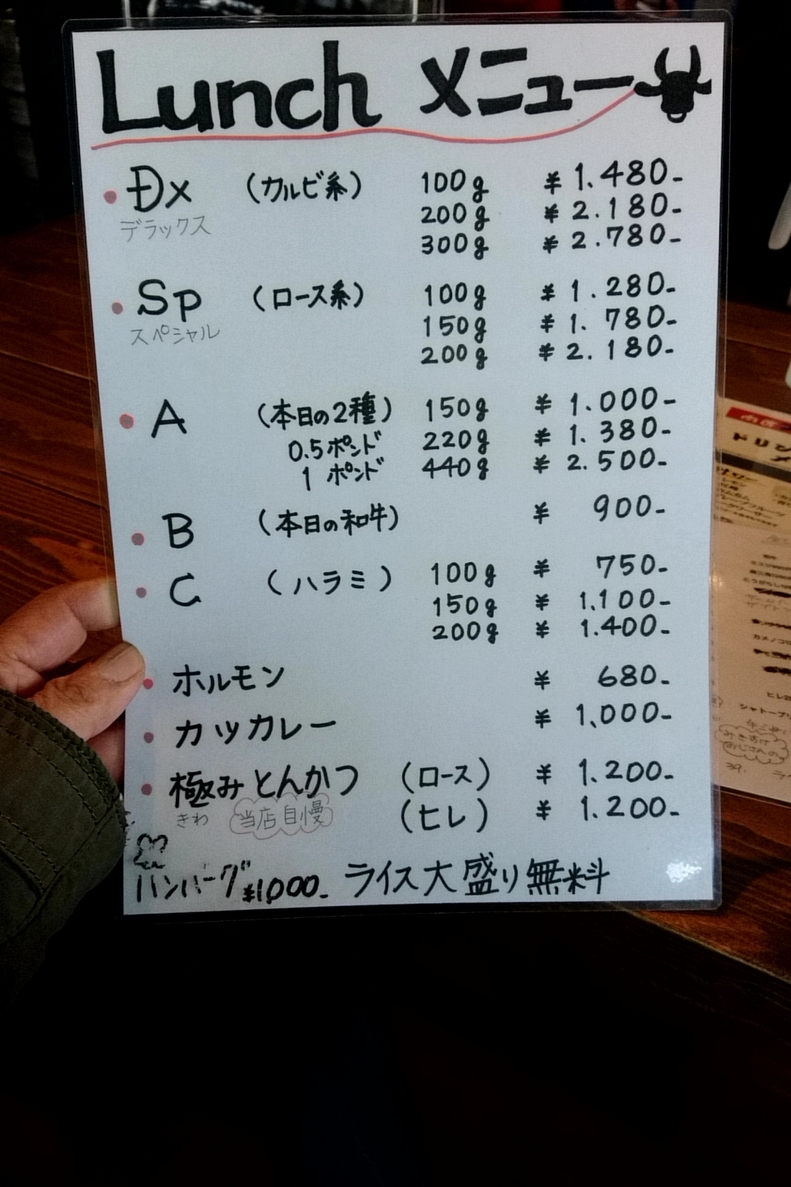 Lunch メニュー
・Dx (カルビ系) 100g ¥1.480-
デラックス 200g ¥2.180-
300g ¥2.780-
・Sp (ロース系) 100g ¥1.280-
スペシャル 150g ¥1.780-
200g ¥2.180-
・A (本日の2種) 150g ¥1.000-
0.5ポンド 220g ¥1.380-
1ポンド 440g ¥2.500-
・B (本日の和牛) ¥900-
・C (ハラミ) 100g ¥750-
150g ¥1.100-
200g ¥1.400-
・ホルモン ¥680-
・カツカレー ¥1,000-
・極みとんかつ (ロース) ¥1.200-
きわ 当店自慢 (ヒレ) ¥1.200-
ハンバーグ ¥1000- ライス大盛り無料
ドリン